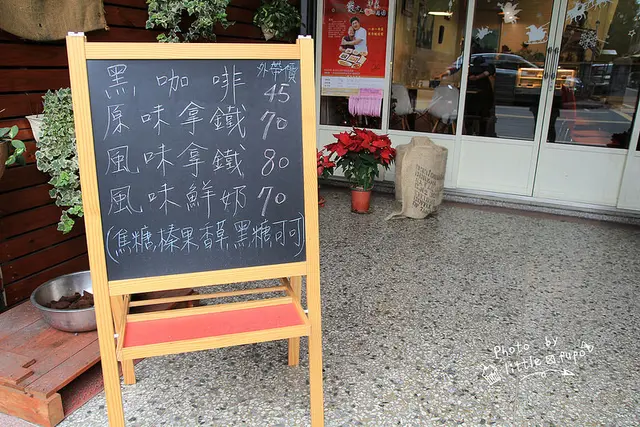 外帶價
黑咖啡 45
原味拿鐵 70
風味拿鐵 80
風味鮮奶 70
(焦糖,榛果,香草,黑糖,可可)
photo by
little pupo